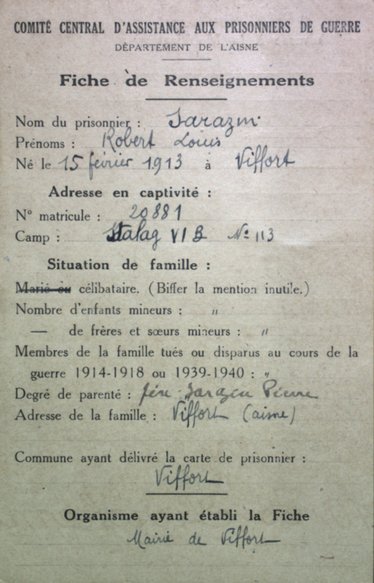 COMITÉ CENTRAL D'ASSISTANCE AUX PRISONNIERS DE GUERRE
DÉPARTEMENT DE L'AISNE
Fiche de Renseignements
Nom du prisonnier : Sarazin
Prénoms : Robert Louis
Né le 15 février 1913 à Viffort
Adresse en captivité :
N° matricule : 20881
Camp : Stalag VI B N° 113
Situation de famille :
Marié ou célibataire. (Biffer la mention inutile.)
Nombre d'enfants mineurs : "
— de frères et sœurs mineurs : "
Membres de la famille tués ou disparus au cours de la
guerre 1914-1918 ou 1939-1940 : "
Degré de parenté : père Sarazin Pierre
Adresse de la famille : Viffort (aisne)
Commune ayant délivré la carte de prisonnier :
Viffort
Organisme ayant établi la Fiche
Mairie de Viffort